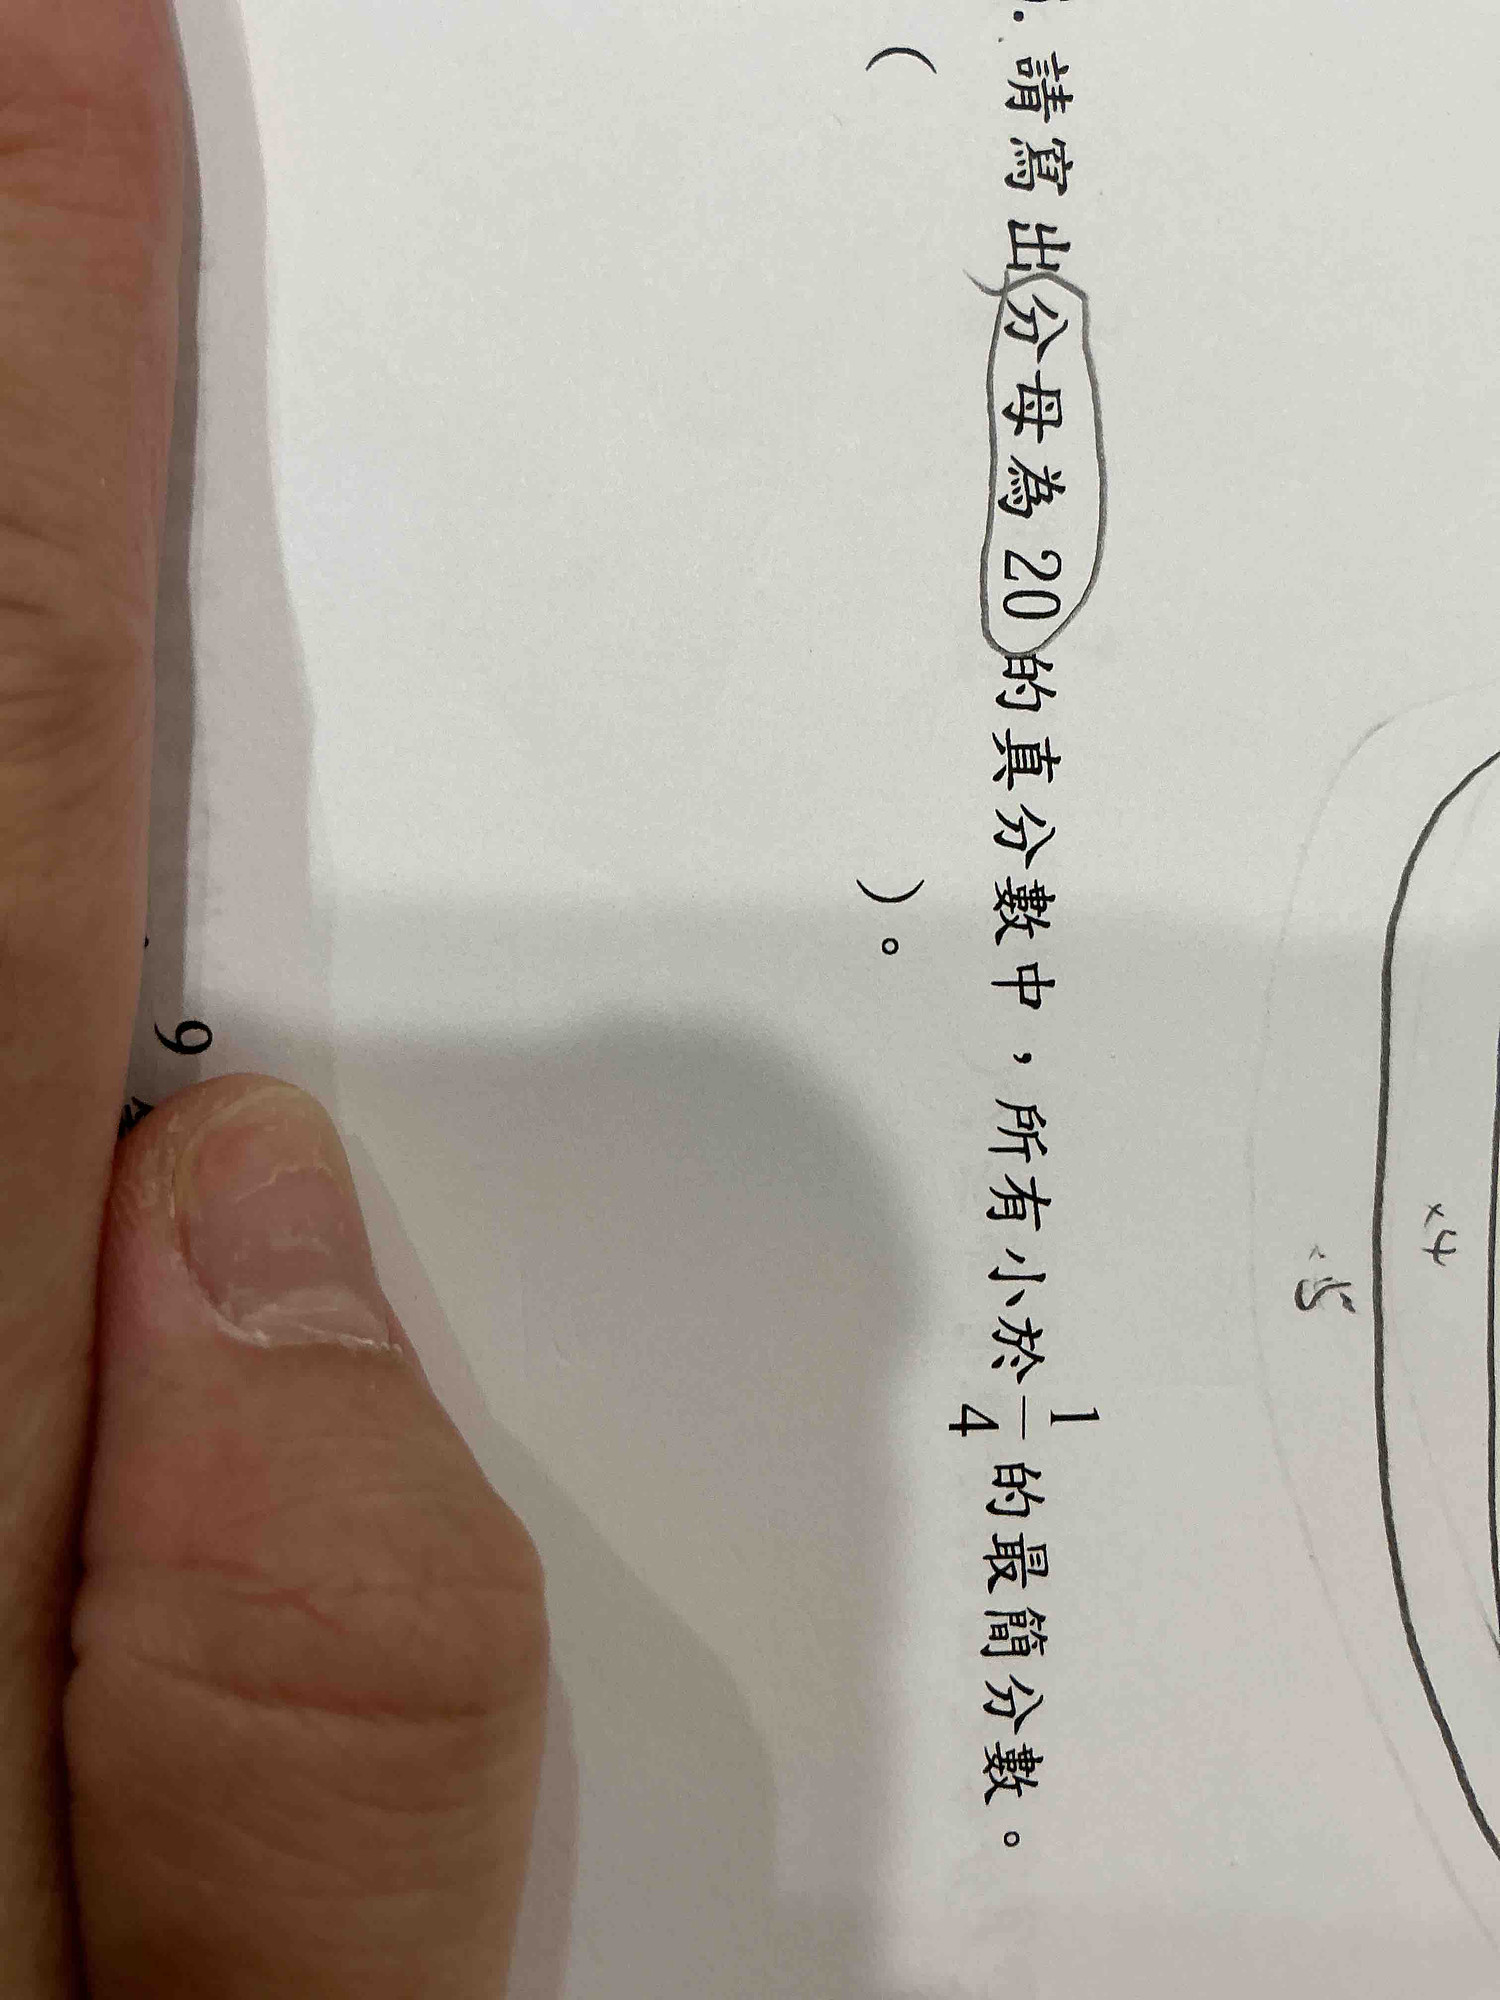 ×4
×5
. 請寫出分母為 20 的真分數中，所有小於 1/4 的最簡分數。
（ ）。
9